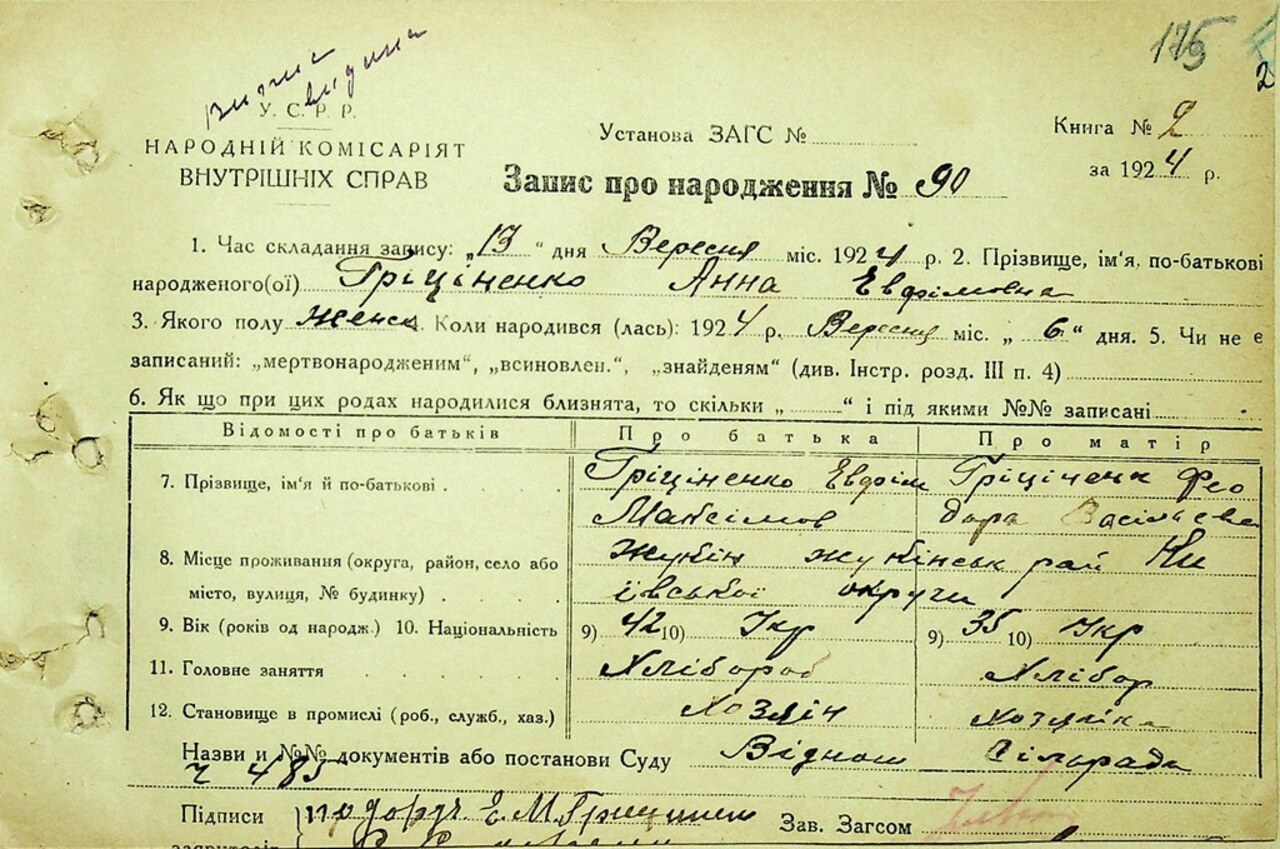 175
2
У. С. Р. Р.
НАРОДНІЙ КОМІСАРІЯТ
ВНУТРІШНІХ СПРАВ
Установа ЗАГС №
Книга № 2
за 1924 р.
Запис про народження № 90
1. Час складання запису: „13“ дня Вересня міс. 1924 р. 2. Прізвище, ім'я, по-батькові
народженого(ої) Гріціненко Анна Евфімовна
3. Якого полу Женск 4. Коли народився (лась): 1924 р. Вересня міс. „6“ дня. 5. Чи не є
записаний: „мертвонародженим“, „всиновлен.“, „знайденям“ (див. Інстр. розд. III п. 4)
6. Як що при цих родах народилися близнята, то скільки „ “ і під якими №№ записані
Відомості про батьків Про батька Про матір
7. Прізвище, ім'я й по-батькові Гріціненко Евфім Гріціненк Фео
Максімов дора Васільєвна
8. Місце проживання (округа, район, село або
місто, вулиця, № будинку)
рай Ки
ївської округи
9. Вік (років од народж.) 10. Національність 9) 42 10) Укр 9) 35 10) Укр
11. Головне заняття Хлібороб Хлібор
12. Становище в промислі (роб., служб., хаз.) Хозяін Хозяіка
Назви и №№ документів або постанови Суду Віднош Сільради
ч 485
Підписи по доруч Е. М. Зав. Загсом
заявителів